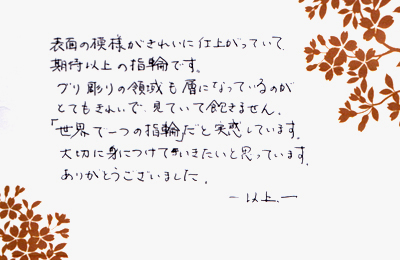 表面の模様がきれいに仕上がっていて
期待以上の指輪です。
グリ彫りの領域も層になっているのが
とてもきれいで見ていて飽きません。
「世界で一つの指輪」だと実感しています。
大切に身につけていきたいと思っています。
ありがとうございました。
－以上－